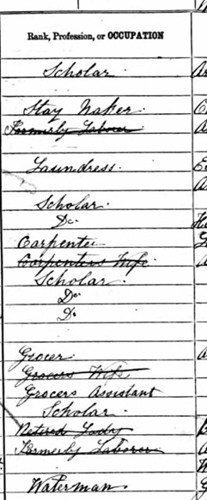 Rank, Profession, or OCCUPATION
Scholar
Stay Maker
Formerly Laborer
Laundress
Scholar
Do
Carpenter
Carpenters Wife
Scholar
Do
Do
Grocer
Grocers Wife
Grocers Assistant
Scholar
Retired Lady
Formerly Laborer
Waterman